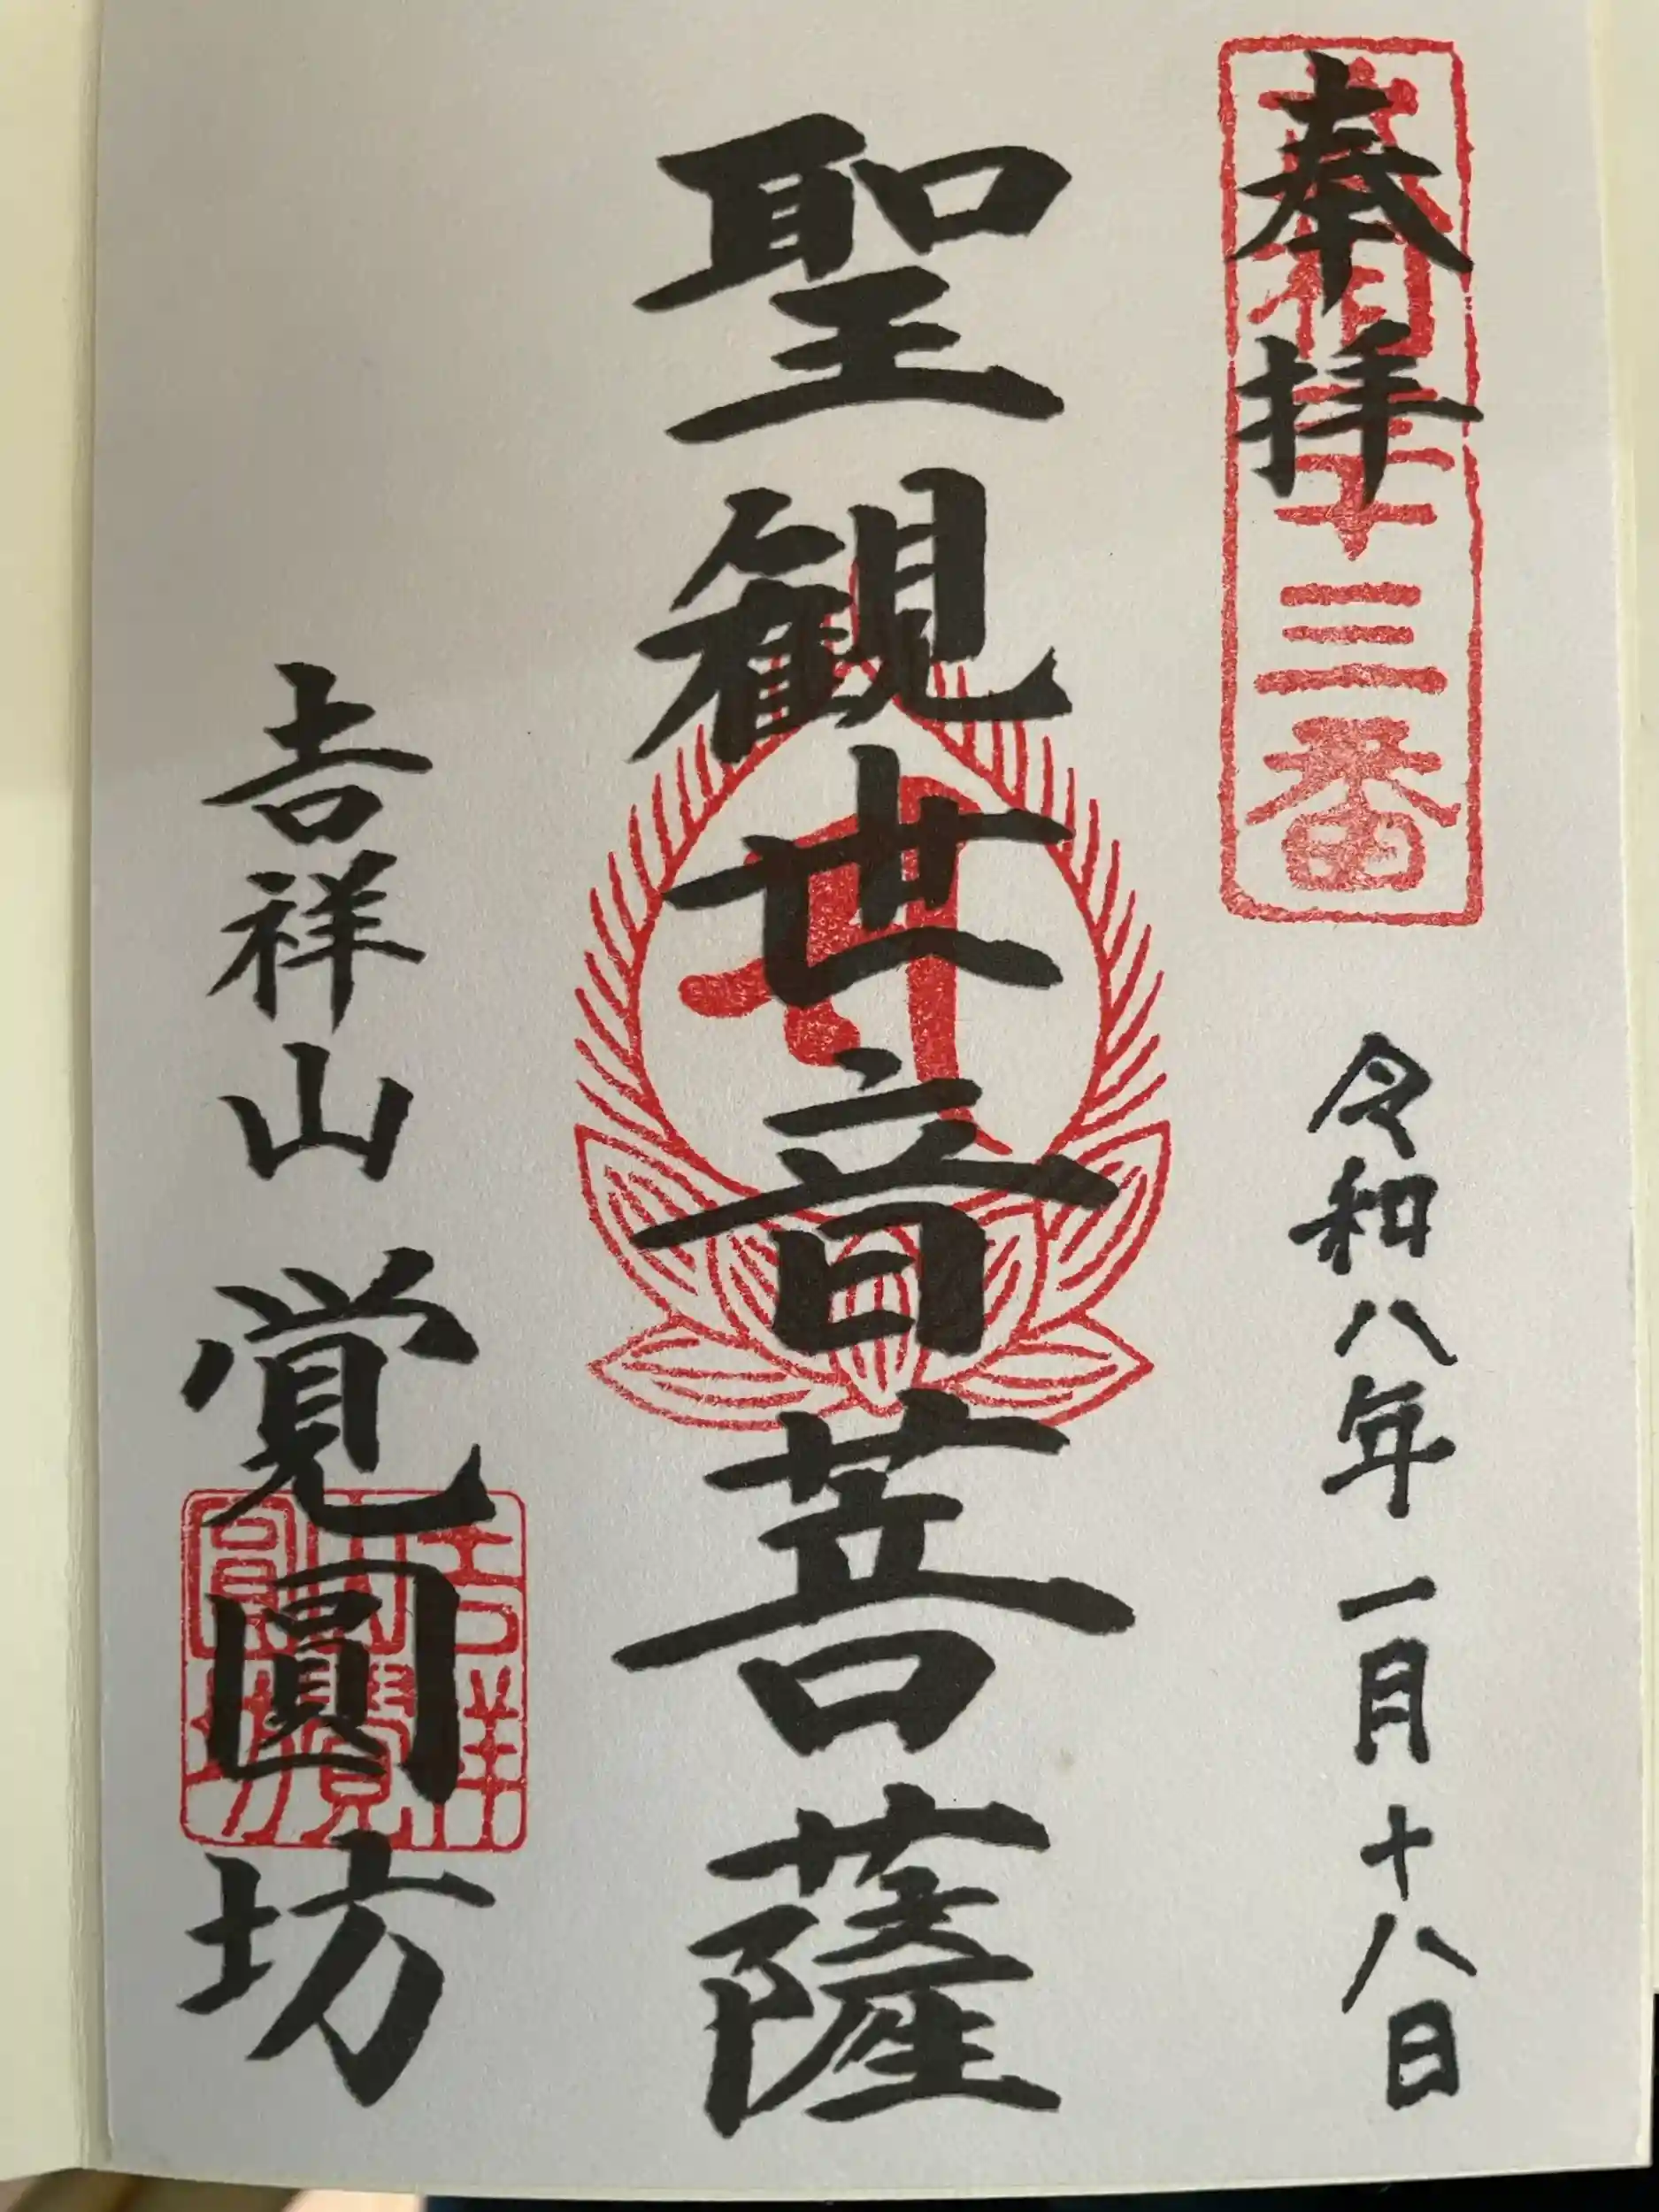 奉拝
武相三十三番
令和八年一月十八日
聖観世音菩薩
吉祥山覚圓坊
吉祥
山覺
圓坊